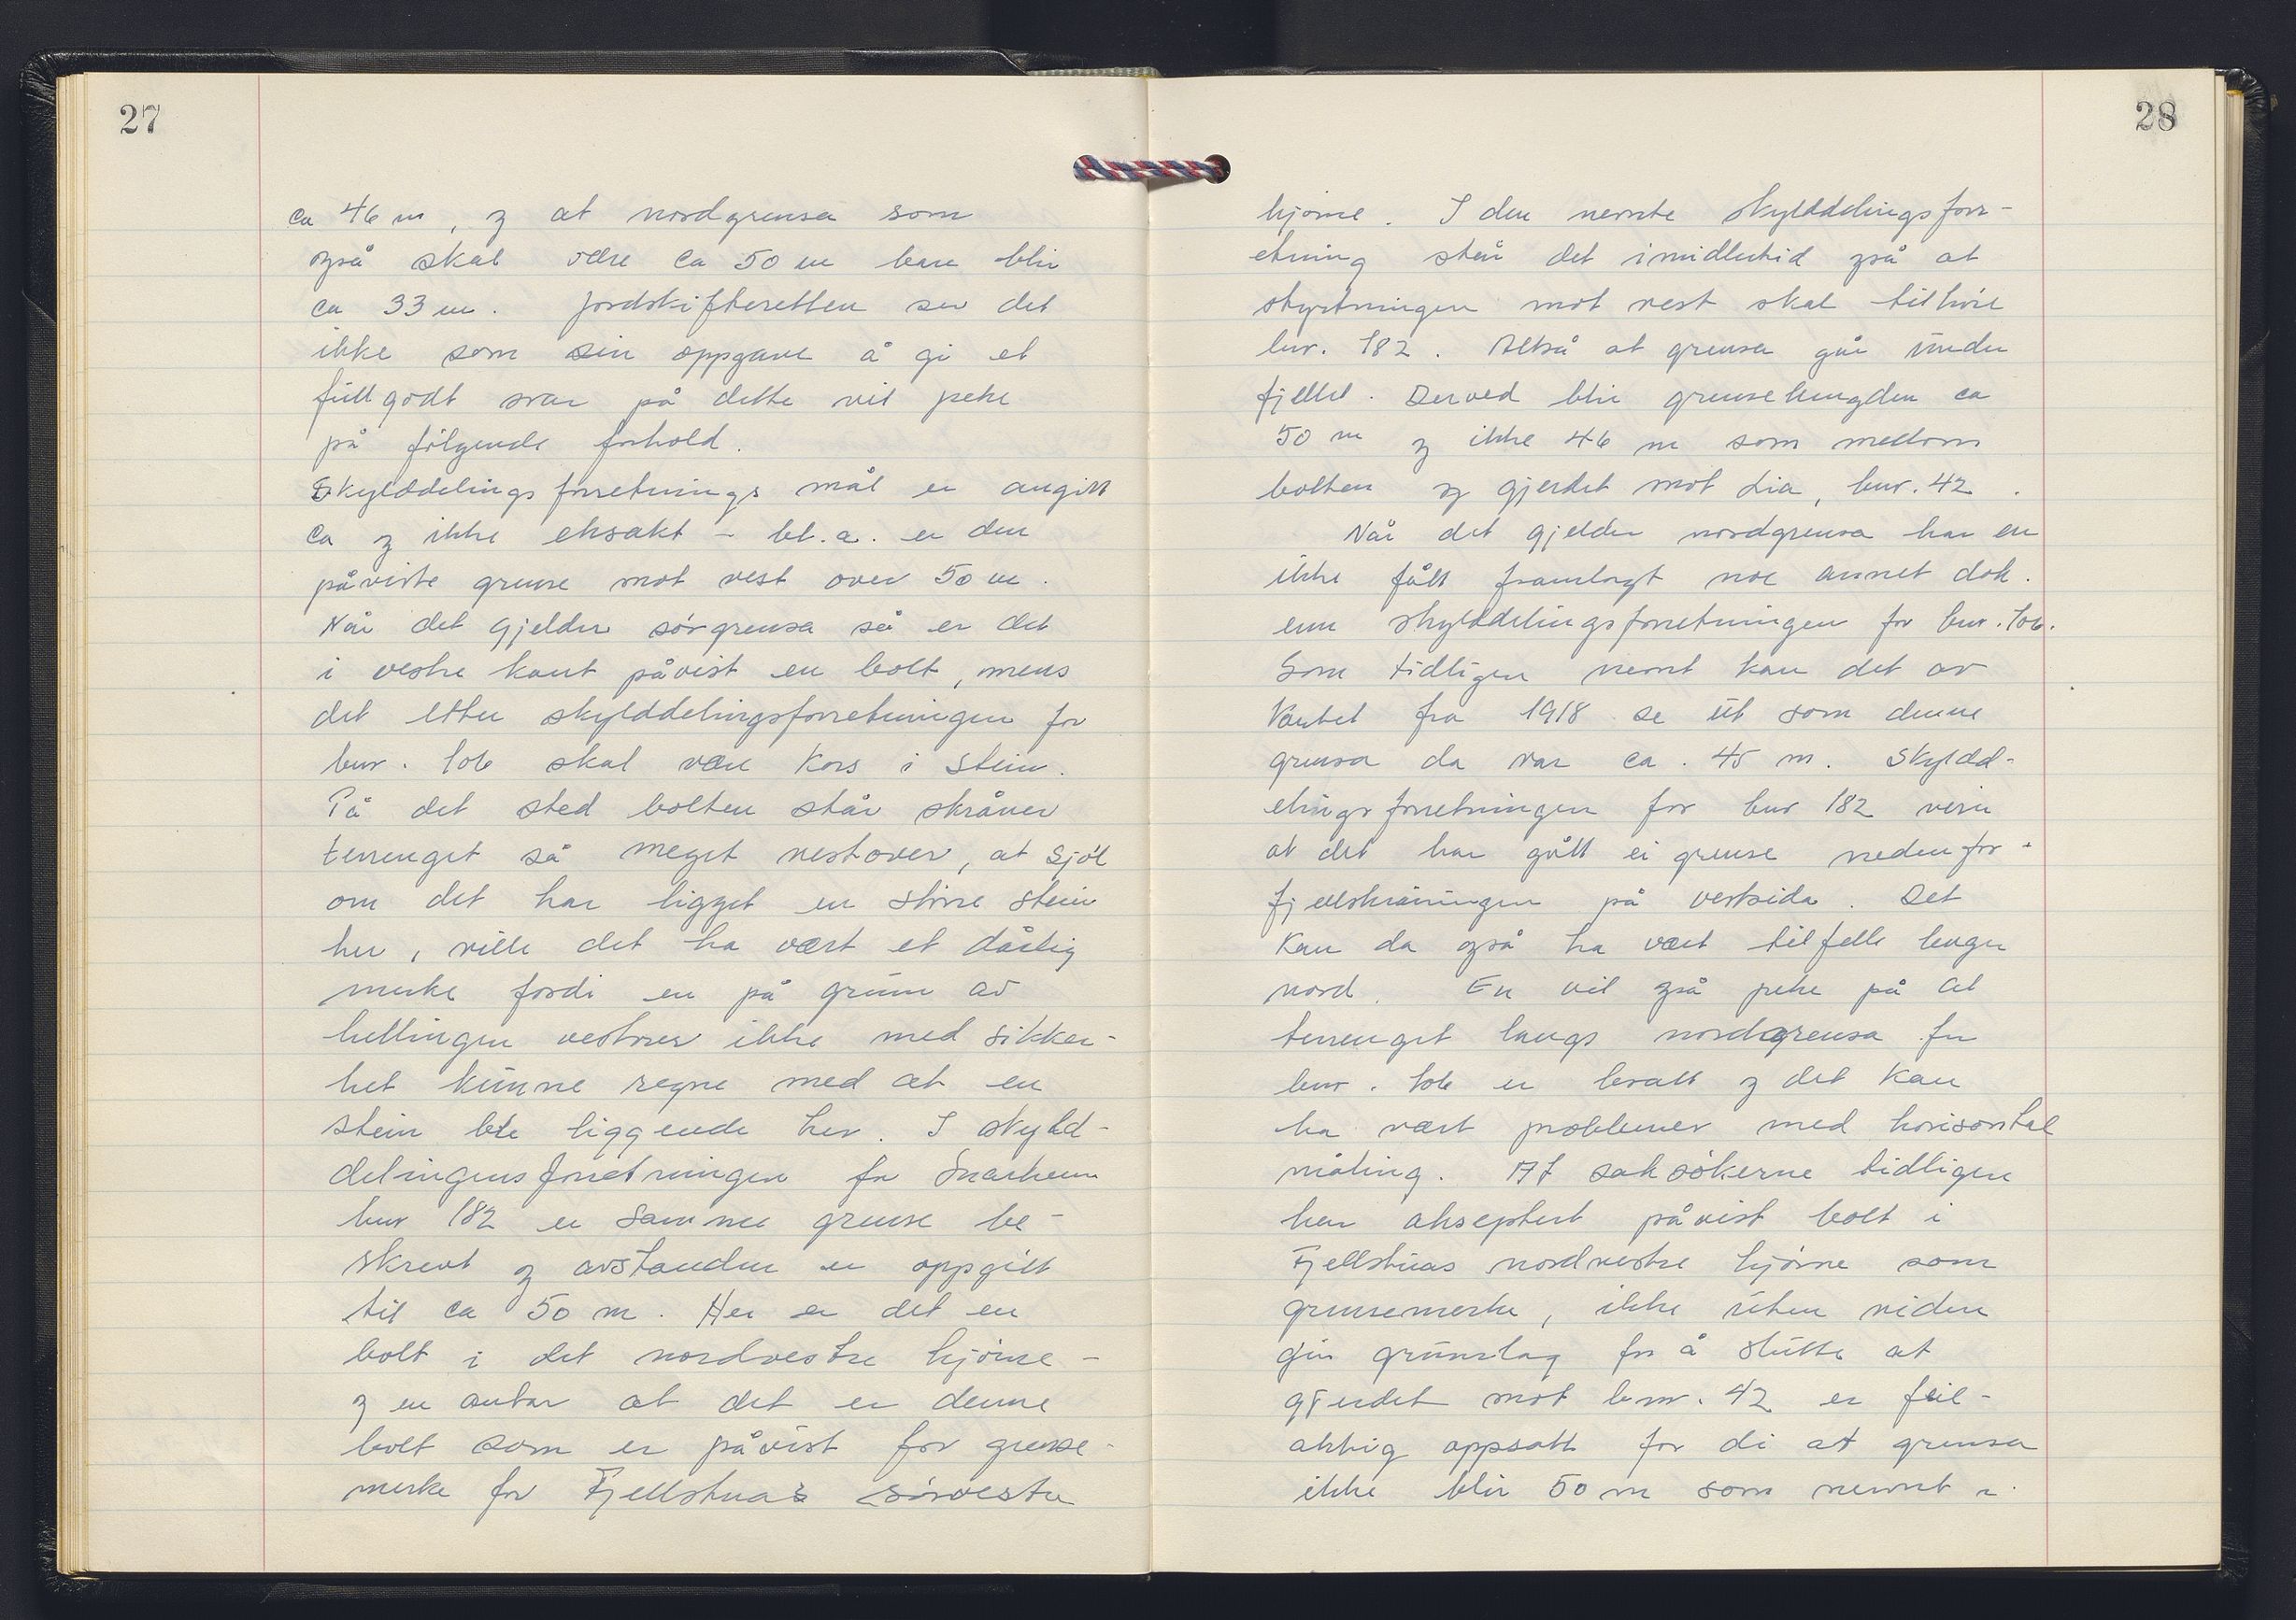 27
ca 46 m, og at nordgrensa som
også skal være ca 50 m bare blir
ca 33 m. Jordskifteretten ser det
ikke som sin oppgave å gi et
fullgodt svar på dette vil peke
på følgende forhold.
Skylddelingsforretnings mål er angitt
ca og ikke eksakt - bl.a. er den
påviste grense mot vest over 50 m.
Når det gjelder sørgrensa så er det
i vestre kant påvist en bolt, mens
det etter skylddelingsforretningen for
bnr. 106 skal være kors i stein.
På det sted bolten står skråner
terrenget så meget vestover, at sjøl
om det har ligget en større stein
her, ville det ha vært et dårlig
merke fordi en på grunn av
hellingen vestover ikke med sikker-
het kunne regne med at en
stein ble liggende her. I skyld-
delingensforretningen for Snarheim
bnr 182 er samme grense be-
skrevt og avstanden er oppgitt
til ca 50 m. Her er det en
bolt i det nordvestre hjørne -
og en antar at det er denne
bolt som er påvist for grense-
merke for Fjellstuas sørvestre
28
hjørne. I den nevnte skylddelingsforr-
etning står det imidlertid også at
styrtningen mot vest skal tilhøre
bnr. 182. Altså at grensa går under
fjellet. Derved blir grenselengden ca
50 m og ikke 46 m som mellom
bolten og gjerdet mot Lia, bnr. 42.
Når det gjelder nordgrensa har en
ikke fått framlagt noe annet dok.
enn skylddelingsforretningen for bnr. 106.
Som tidligere nevnt kan det av
kartet fra 1918 se ut som denne
grensa da var ca. 45 m. Skyldd-
elingsforretningen for bnr 182 viser
at det har gått ei grense nedenfor
fjellskråningen på vestsida. Det
kan da også ha vært tilfelle lenger
nord. En vil også peke på at
terrenget langs nordgrensa for
bnr. 106 er bratt og det kan
ha vært problemer med horisontal
måling. At saksøkerne tidligere
har akseptert påvist bolt i
Fjellstuas nordvestre hjørne som
grensemerke, ikke uten viden
gir grunnlag for å slutte at
gjerdet mot bnr. 42 er feil-
aktig oppsatt for di at grensa
ikke blir 50 m som nevnt i